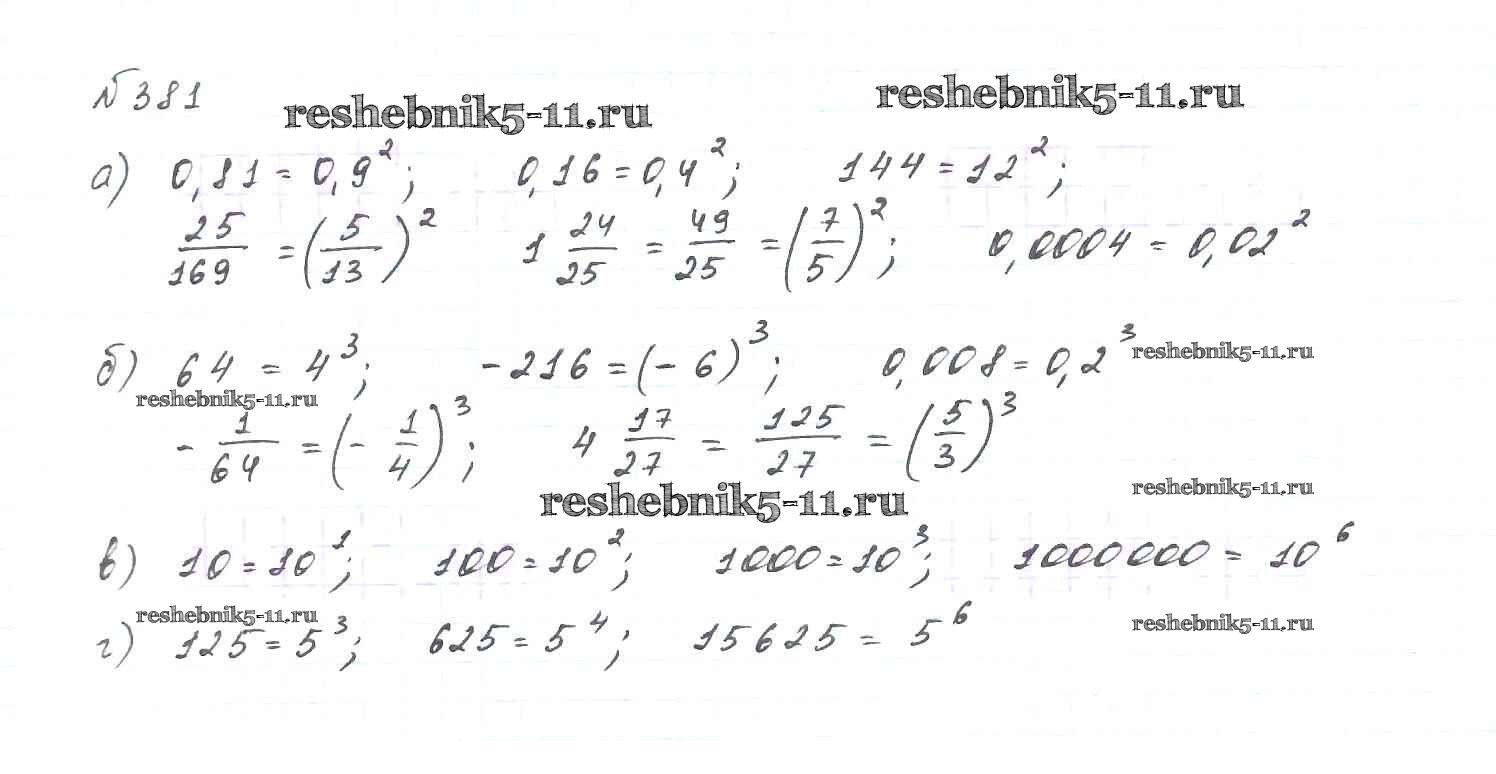 №381
reshebnik5-11.ru reshebnik5-11.ru
а) 0,81 = 0,9²; 0,16 = 0,4²; 144 = 12²;
25/169 = (5/13)² 1 24/25 = 49/25 = (7/5)²; 0,0004 = 0,02²
б) 64 = 4³; -216 = (-6)³; 0,008 = 0,2³ reshebnik5-11.ru
reshebnik5-11.ru
-1/64 = (-1/4)³; 4 17/27 = 125/27 = (5/3)³
reshebnik5-11.ru reshebnik5-11.ru
в) 10 = 10¹; 100 = 10²; 1000 = 10³; 1000000 = 10⁶
reshebnik5-11.ru reshebnik5-11.ru
г) 125 = 5³; 625 = 5⁴; 15625 = 5⁶